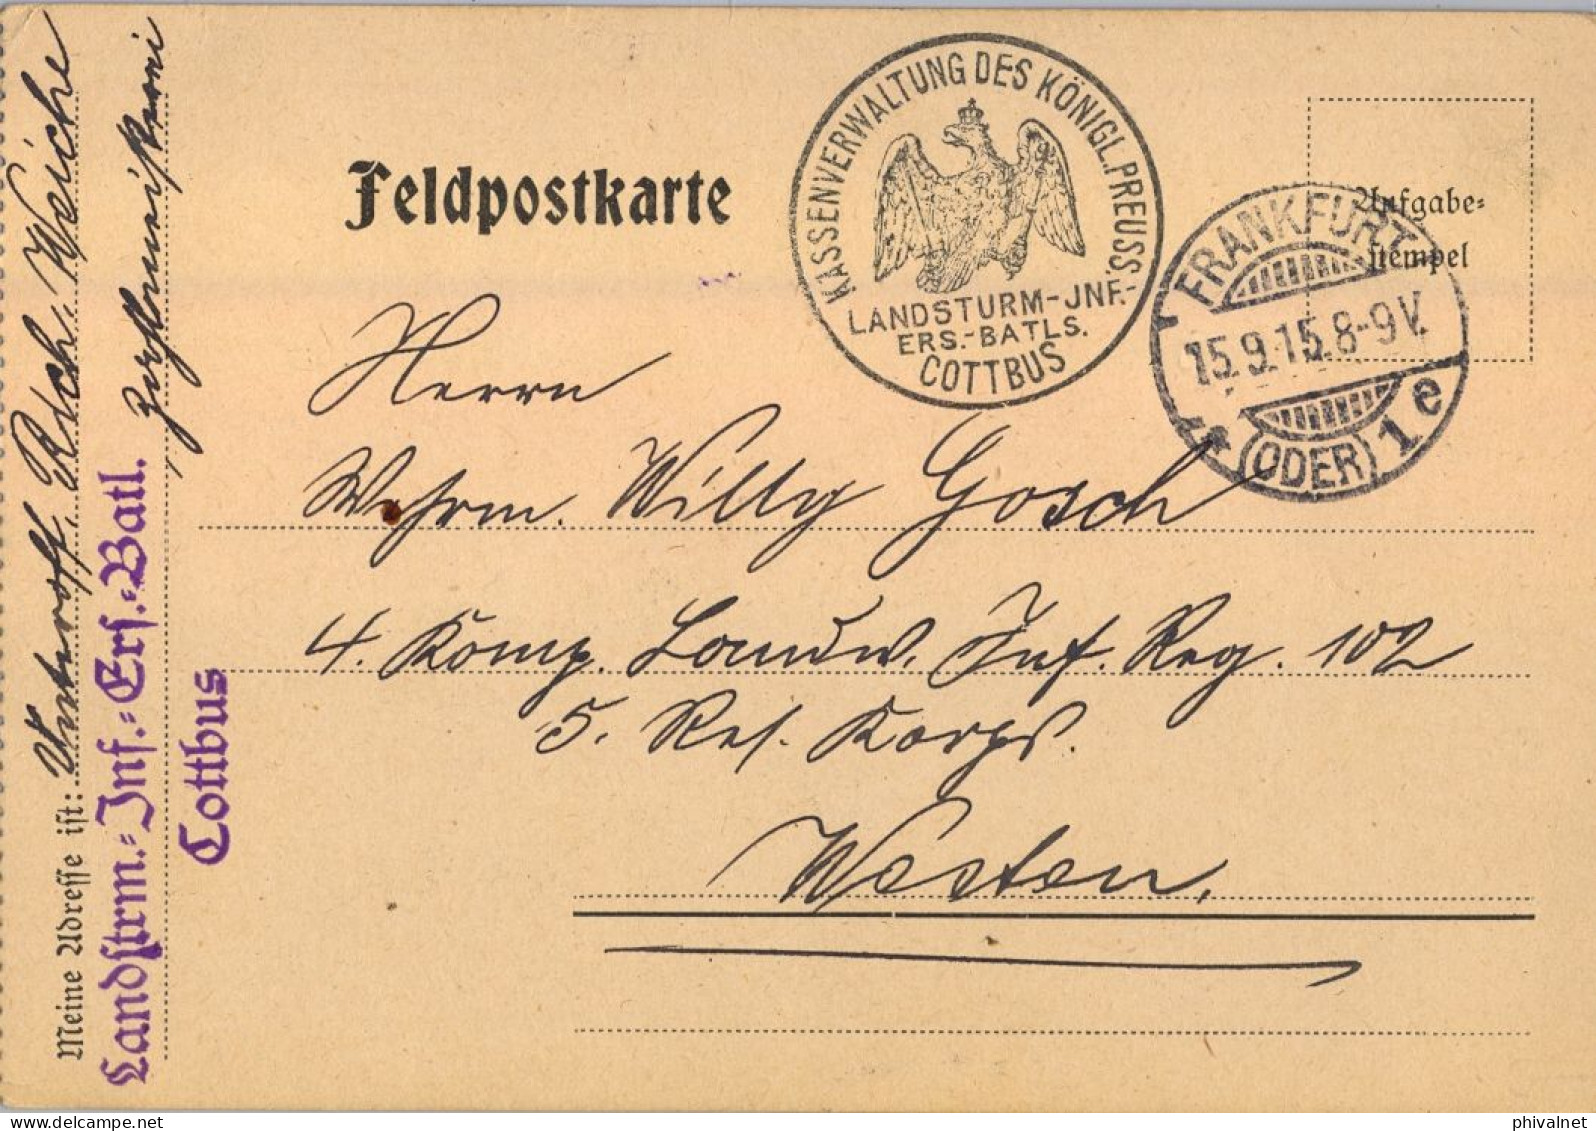 Feldpostkarte
KASSENVERWALTUNG DES KÖNIGL. PREUSS.
LANDSTURM-JNF.-
ERS.-BATLS.
COTTBUS
Aufgabe-
stempel
FRANKFURT
15.9.15.8-9V.
(ODER) 1 e
Herrn
Wehrm. Willy Gosch
4. Komp. Landw. Inf. Reg. 102
5. Res. Korps.
Westen.
Meine Adresse ist: Unteroff. Rich. Weiche
Zahlmeisterei
Landstrm.-Inf.-Ers.-Batl.
Cottbus
phivalnet